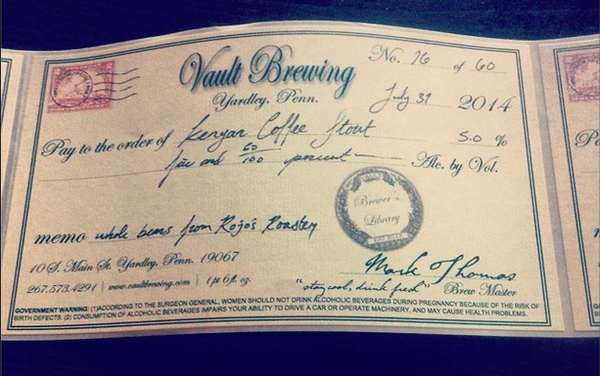 Vault Brewing
Yardley, Penn.
No. 76 of 60
July 31 2014
Pay to the order of Kenyan Coffee Stout 5.0 %
five and 60/100 percent Alc. by Vol.
Brewer's
Library
memo whole beans from Rojo's Roastery
10 S. Main St. Yardley, Penn. 19067
267.573.4291 | www.vaultbrewing.com | 1 pt 6 fl. oz.
Mark Thomas
"stay cool, drink fresh" Brew Master
GOVERNMENT WARNING: (1)ACCORDING TO THE SURGEON GENERAL, WOMEN SHOULD NOT DRINK ALCOHOLIC BEVERAGES DURING PREGNANCY BECAUSE OF THE RISK OF
BIRTH DEFECTS. (2) CONSUMPTION OF ALCOHOLIC BEVERAGES IMPAIRS YOUR ABILITY TO DRIVE A CAR OR OPERATE MACHINERY, AND MAY CAUSE HEALTH PROBLEMS.